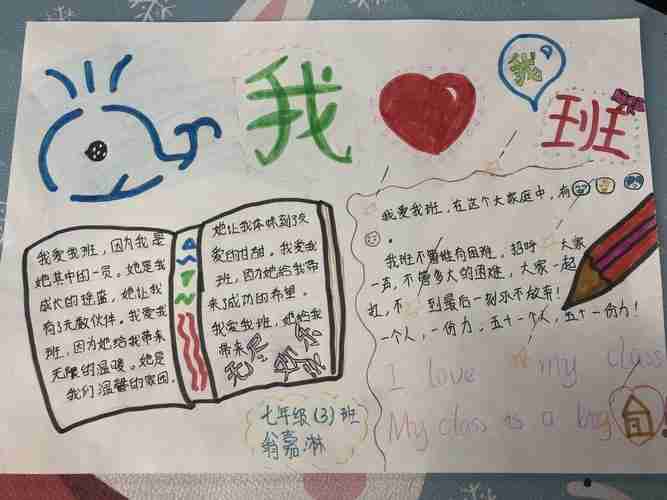 我
我
班
我爱我班，因为我是
她其中的一员。她是我
成长的摇篮，她让我
有3无数伙伴。我爱我
班，因为她给我带来
无限的温暖。她是
我们温馨的家园。
她让我体味到3友
爱的甘甜。我爱我
班，因为她给我带
来了成功的希望。
我爱我班，她给我
带来无尽欢乐
我爱我班，在这个大家庭中，有
。
我班不管谁有困难，招呼 大家
一声，不管多大的困难，大家一起
扛，不 到最后一刻永不放弃！
一个人，一份力，五十一个人，五十一份力！
I love my class
My class is a big !
七年级(3)班
翁嘉淋